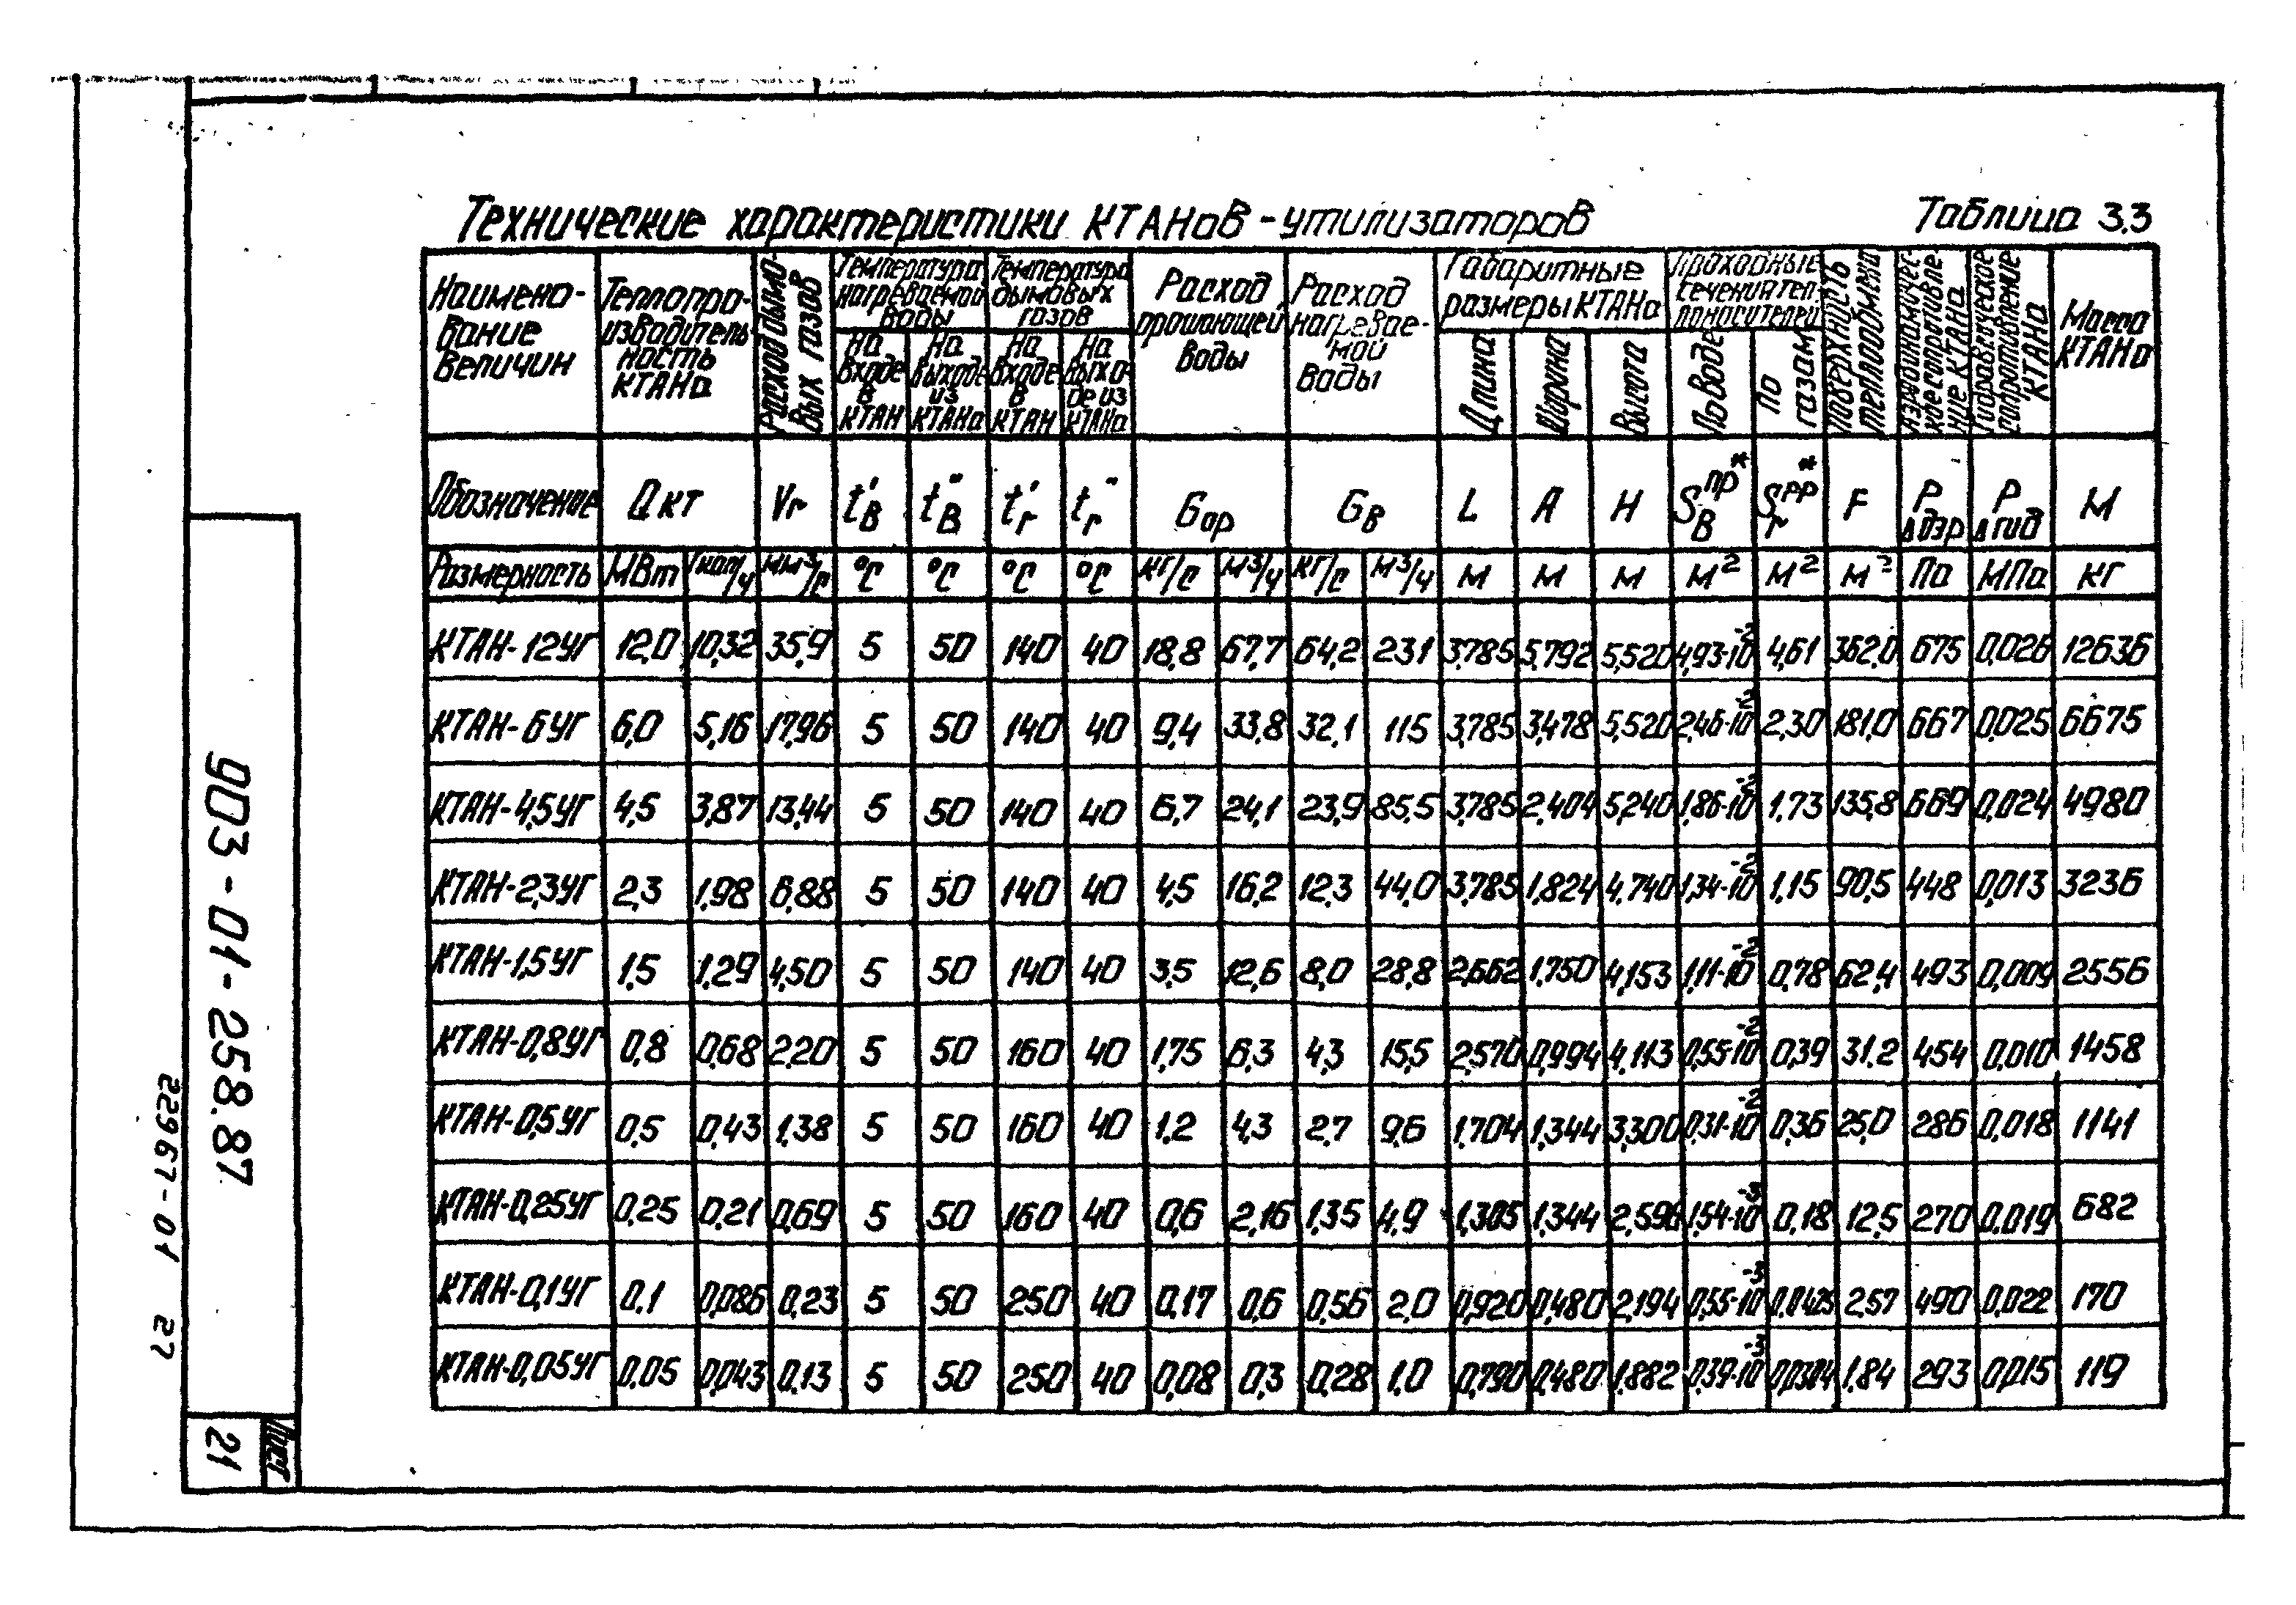 Технические характеристики КТАНов - утилизаторов
Таблица 3.3
Наимено- вание величин | Теплопро- изводитель- ность КТАНа | Расход дымо- вых газов | Температура нагреваемой воды | Температура дымовых газов | Расход орошающей воды | Расход нагревае- мой воды | Габаритные размеры КТАНа | Проходные сечения теп- лоносителей | Поверхность теплообмена | Аэродинамичес- кое сопротивле- ние КТАНа | Гидравлическое сопротивление КТАНа | Масса КТАНа
На входе в КТАН | На выходе из КТАНа | На входе в КТАН | На выхо- де из КТАНа | Длина | Ширина | Высота | По воде | По газам
Обозначение | Qкт | Vг | t'в | t"в | t'г | t"г | Gор | Gв | L | A | H | Sв пр* | Sг рр* | F | PΔаэр | PΔгид | M
Размерность | МВт | Гкал/ч | мм³/с | °С | °С | °С | °С | кг/с | м³/ч | кг/с | м³/ч | м | м | м | м² | м² | м² | Па | МПа | кг
КТАН-12УГ | 12,0 | 10,32 | 35,9 | 5 | 50 | 140 | 40 | 18,8 | 67,7 | 64,2 | 231 | 3,785 | 5,792 | 5,520 | 4,93·10⁻² | 4,61 | 362,0 | 675 | 0,026 | 12636
КТАН-6УГ | 6,0 | 5,16 | 17,96 | 5 | 50 | 140 | 40 | 9,4 | 33,8 | 32,1 | 115 | 3,785 | 3,478 | 5,520 | 2,46·10⁻² | 2,30 | 181,0 | 667 | 0,025 | 6675
КТАН-4,5УГ | 4,5 | 3,87 | 13,44 | 5 | 50 | 140 | 40 | 6,7 | 24,1 | 23,9 | 85,5 | 3,785 | 2,404 | 5,240 | 1,86·10⁻² | 1,73 | 135,8 | 669 | 0,024 | 4980
КТАН-2,3УГ | 2,3 | 1,98 | 6,88 | 5 | 50 | 140 | 40 | 4,5 | 16,2 | 12,3 | 44,0 | 3,785 | 1,824 | 4,740 | 1,34·10⁻² | 1,15 | 90,5 | 448 | 0,013 | 3236
КТАН-1,5УГ | 1,5 | 1,29 | 4,50 | 5 | 50 | 140 | 40 | 3,5 | 12,6 | 8,0 | 28,8 | 2,662 | 1,750 | 4,153 | 1,11·10⁻² | 0,78 | 62,4 | 493 | 0,009 | 2556
КТАН-0,8УГ | 0,8 | 0,68 | 2,20 | 5 | 50 | 160 | 40 | 1,75 | 6,3 | 4,3 | 15,5 | 2,570 | 0,994 | 4,113 | 0,55·10⁻² | 0,39 | 31,2 | 454 | 0,010 | 1458
КТАН-0,5УГ | 0,5 | 0,43 | 1,38 | 5 | 50 | 160 | 40 | 1,2 | 4,3 | 2,7 | 9,6 | 1,704 | 1,344 | 3,300 | 0,31·10⁻² | 0,36 | 25,0 | 286 | 0,018 | 1141
КТАН-0,25УГ | 0,25 | 0,21 | 0,69 | 5 | 50 | 160 | 40 | 0,6 | 2,16 | 1,35 | 4,9 | 1,305 | 1,344 | 2,596 | 1,54·10⁻³ | 0,18 | 12,5 | 270 | 0,019 | 682
КТАН-0,1УГ | 0,1 | 0,086 | 0,23 | 5 | 50 | 250 | 40 | 0,17 | 0,6 | 0,56 | 2,0 | 0,920 | 0,480 | 2,194 | 0,55·10⁻³ | 0,0425 | 2,57 | 490 | 0,022 | 170
КТАН-0,05УГ | 0,05 | 0,043 | 0,13 | 5 | 50 | 250 | 40 | 0,08 | 0,3 | 0,28 | 1,0 | 0,790 | 0,480 | 1,882 | 0,39·10⁻³ | 0,0304 | 1,84 | 293 | 0,015 | 119
903-01-258.87
22967-01 27
Лист
21